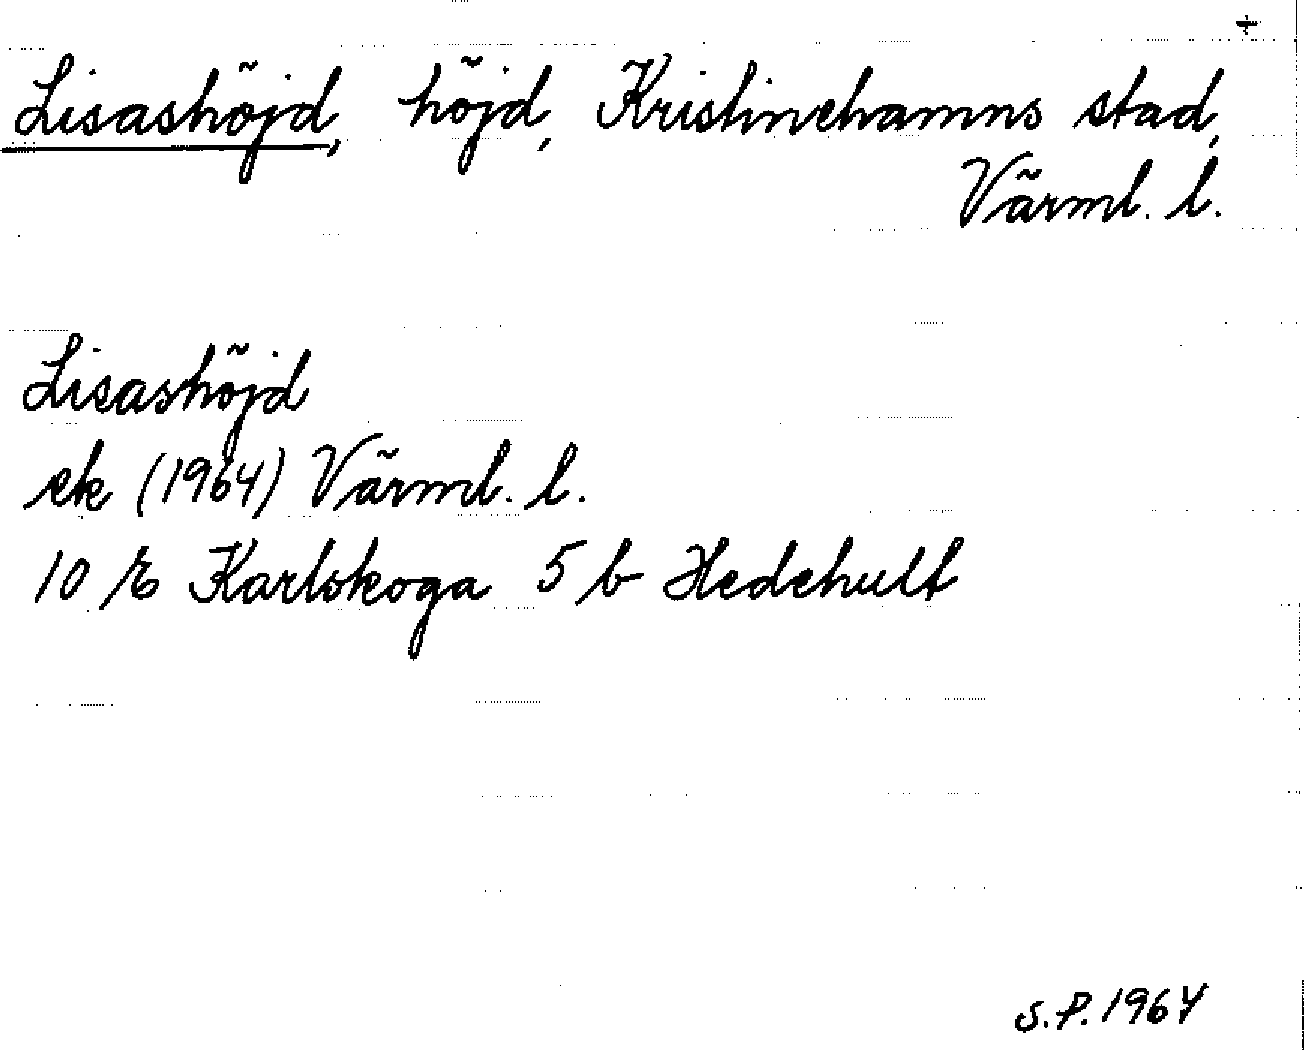 +
Lisashöjd, höjd, Kristinehamns stad,
Värml. l.
Lisashöjd
ek (1964) Värml. l.
10 E Karlskoga 5 b Hedehult
S.P. 1964